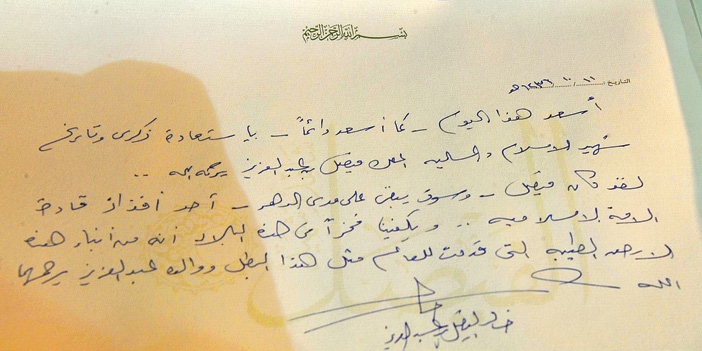 بسم الله الرحمن الرحيم
التاريخ ١١/١٠/١٤٣٦هـ
أسعد هذا اليوم - كما أسعد دائماً - باستعادة ذكرى وتاريخ
شهيد الاسلام والسلام الملك فيصل بن عبدالعزيز يرحمه الله ..
لقد كان فيصل - وسوف يبقى على مدى الدهر - أحد أفذاذ قادة
الامة الاسلامية .. ويكفينا فخراً في هذه البلاد أنه من أبناء هذه
الارض الطيبة التي قدمت للعالم مثل هذا البطل ووالده عبدالعزيز يرحمهما
الله
خالد الفيصل بن عبدالعزيز
الفيصل